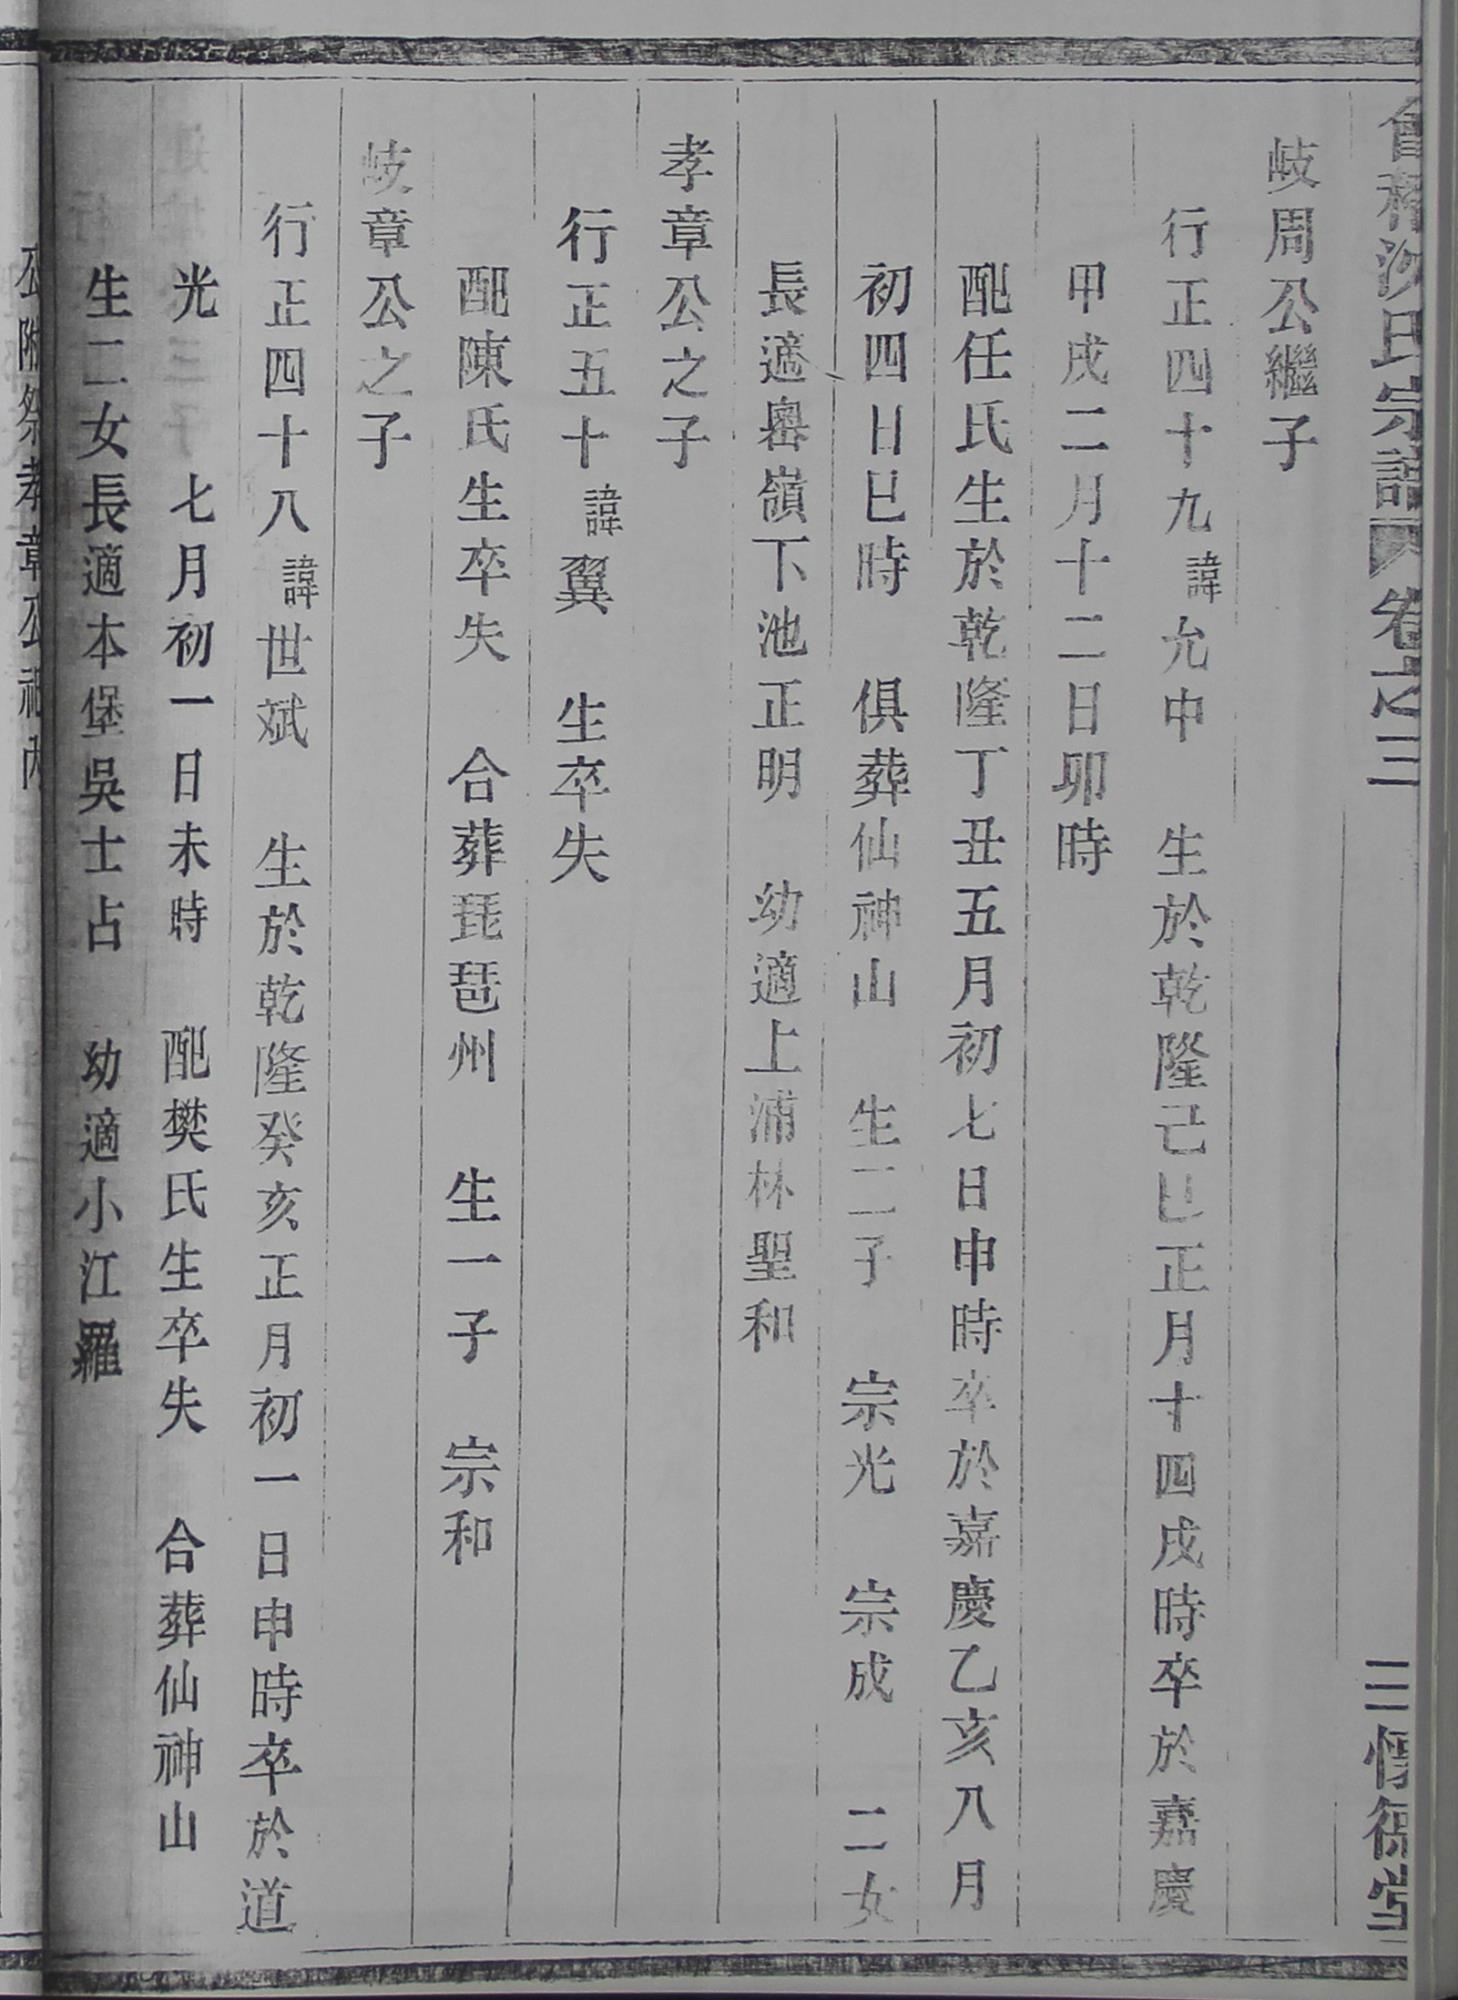 會稽沈氏宗譜 卷之三 三 懷德堂
岐周公繼子
行正四十九諱允中 生於乾隆己巳正月十四戌時卒於嘉慶
甲戌二月十二日卯時
配任氏生於乾隆丁丑五月初七日申時卒於嘉慶乙亥八月
初四日巳時 俱葬仙神山 生二子 宗光 宗成 二女
長適嶴嶺下池正明 幼適上浦林聖和
孝章公之子
行正五十諱翼 生卒失
配陳氏生卒失 合葬琵琶州 生一子 宗和
岐章公之子
行正四十八諱世斌 生於乾隆癸亥正月初一日申時卒於道
光 七月初一日未時 配樊氏生卒失 合葬仙神山
生二女長適本堡吳士占 幼適小江羅